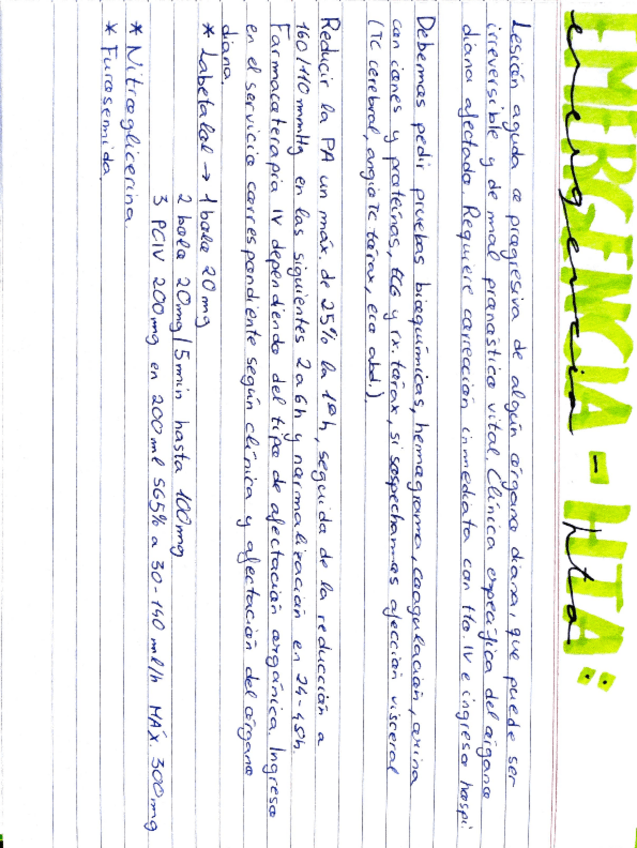 EMERGENCIA - HTA:
emergencia hta
Lesión aguda o progresiva de algún órgano diana, que puede ser
irreversible y de mal pronóstico vital. Clínica específica del órgano
diana afectado. Requiere corrección inmediata con tto. IV e ingreso hospi.
Debemos pedir pruebas bioquímicas, hemograma, coagulación, orina
con iones y proteínas, ECG y rx. tórax, si sospechamos afección visceral
(TC cerebral, angio TC tórax, eco abd.)
Reducir la PA un máx. de 25% la 1ª h, seguida de la reducción a
160/110 mmHg en las siguientes 2 a 6h y normalización en 24-48h.
Farmacoterapia IV dependiendo del tipo de afectación orgánica. Ingreso
en el servicio correspondiente según clínica y afectación del órgano
diana.
* Labetalol → 1 bolo 20 mg
2 bolo 20 mg/5 min hasta 100 mg
3 PCIV 200 mg en 200 ml SG5% a 30-140 ml/h MÁX. 300 mg
* Nitroglicerina.
* Furosemida.